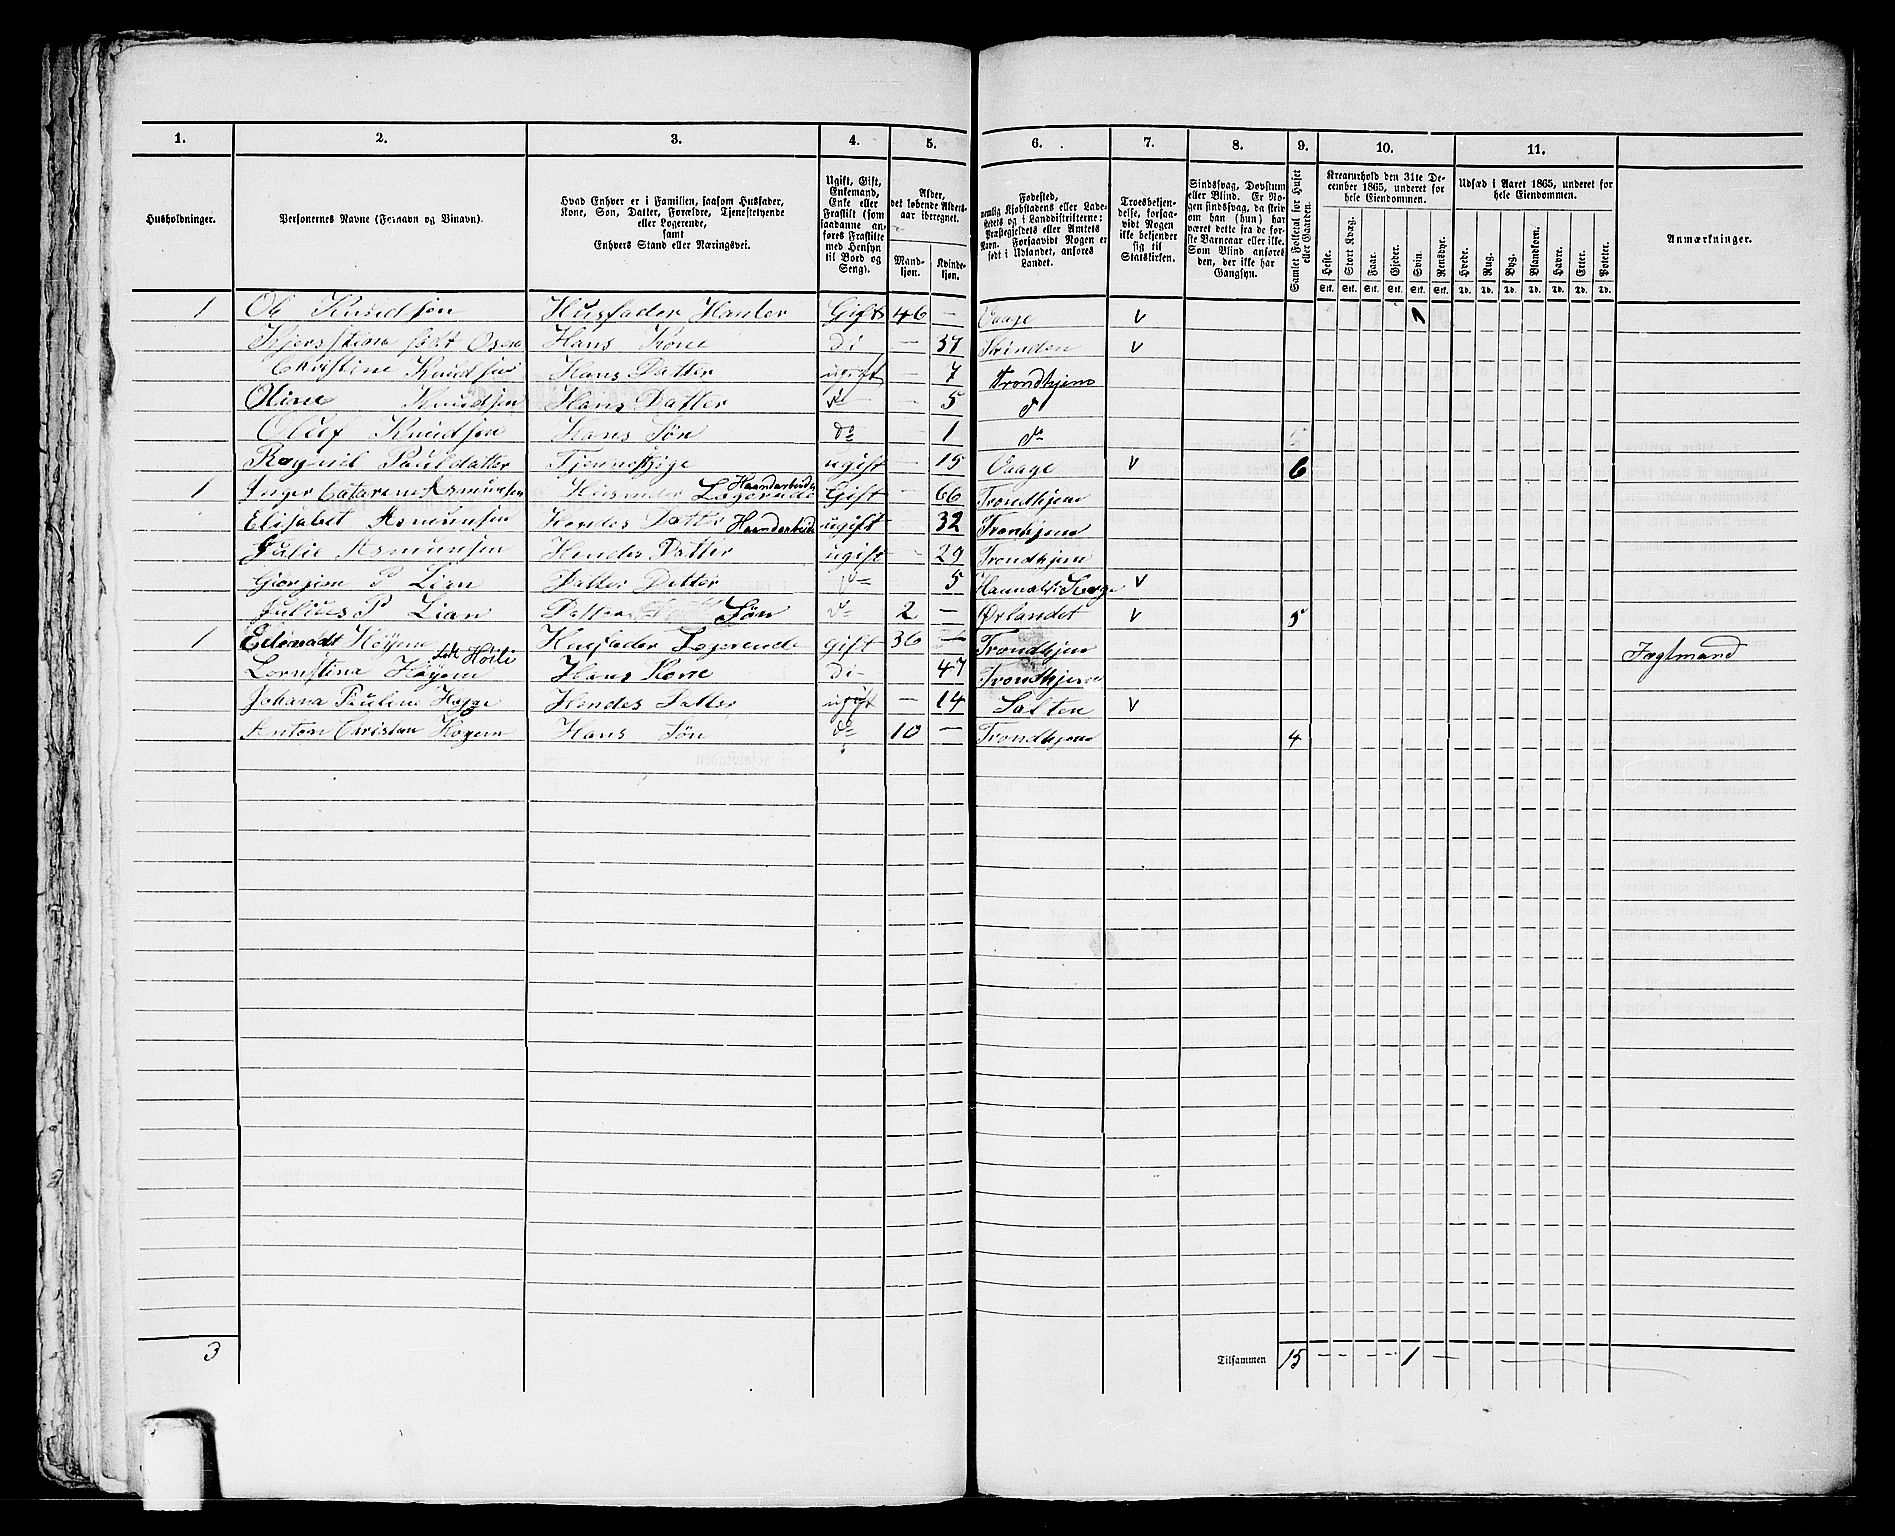 1. 2. 3. 4. 5. 6. 7. 8. 9. 10. 11.
Husholdninger. Personernes Navne (Fornavn og Binavn). Hvad Enhver er i Familien, saasom Husfader, Kone, Søn, Datter, Forældre, Tjenestetyende eller Logerende, samt Enhvers Stand eller Næringsvei. Ugift, Gift, Enkemand, Enke eller Fraskilt (som saadanne anføres Fraskilte med Hensyn til Bord og Seng). Alder, det løbende Aldersaar iberegnet. Mandkjøn. Kvindekjøn. Fødested, nemlig Kjøbstadens eller Ladestedets og i Landdistrikterne: Præstegjeldets eller Amtets Navn. Forsaavidt Nogen er født i Udlandet, anføres Landet. Troesbekjendelse, forsaavidt Nogen ikke bekjender sig til Statskirken. Sindssvag, Døvstum eller Blind. Er Nogen sindssvag, da skrives om han (hun) har været dette fra de første Barneaar eller ikke. Som Blind anføres den, der ikke har Gangsyn. Samlet Folketal for Huset eller Gaarden. Kreaturhold den 31te December 1865, underet for hele Eiendommen. Udsæd i Aaret 1865, underet for hele Eiendommen. Anmærkninger.
Heste. Stort Kvæg. Faar. Gjeder. Svin. Rensdyr. Hvede. Rug. Byg. Blandkorn. Havre. Erter. Poteter.
Stk. Stk. Stk. Stk. Stk. Stk. Td. Td. Td. Td. Td. Td. Td.
1 Ole Knudsen Husfader Gift 46 — Vaage v 1
født Hans Kone Do — 37 Strinden v
Christine Knudsen Hans Datter ugift — 7 Trondhjem
Oline Knudsen Hans Datter do — 5 do
Oluf Knudsen Hans Søn do — 1 do
Pauldatter ugift — 15 Vaage v 6
1 Inger Catarene Asmunsen Logerende Haandarbeide Gift — 66 Trondhjem
Elisabet Asmunsen Datter Haandarbeide ugift — 32 Tronhjem
Julie Asmunsen Hendes Datter ugift — 29 Trondhjem
P Lian Datter Datter do 5 v
Julius P Lian Datter Søn do 2 — Ørlandet v 5
1 Høyem Husfader Logerende gift 36 — Trondhjem Jægtmand
Høyem født Hans Kone Do — 47 Trondhjem
Johana Pauline Hendes Datter ugift — 14 Salten v
Anton Christian Høyem Hans Søn do 10 — Trondhjem 4
3 Tilsammen 15 — — — — 1 —